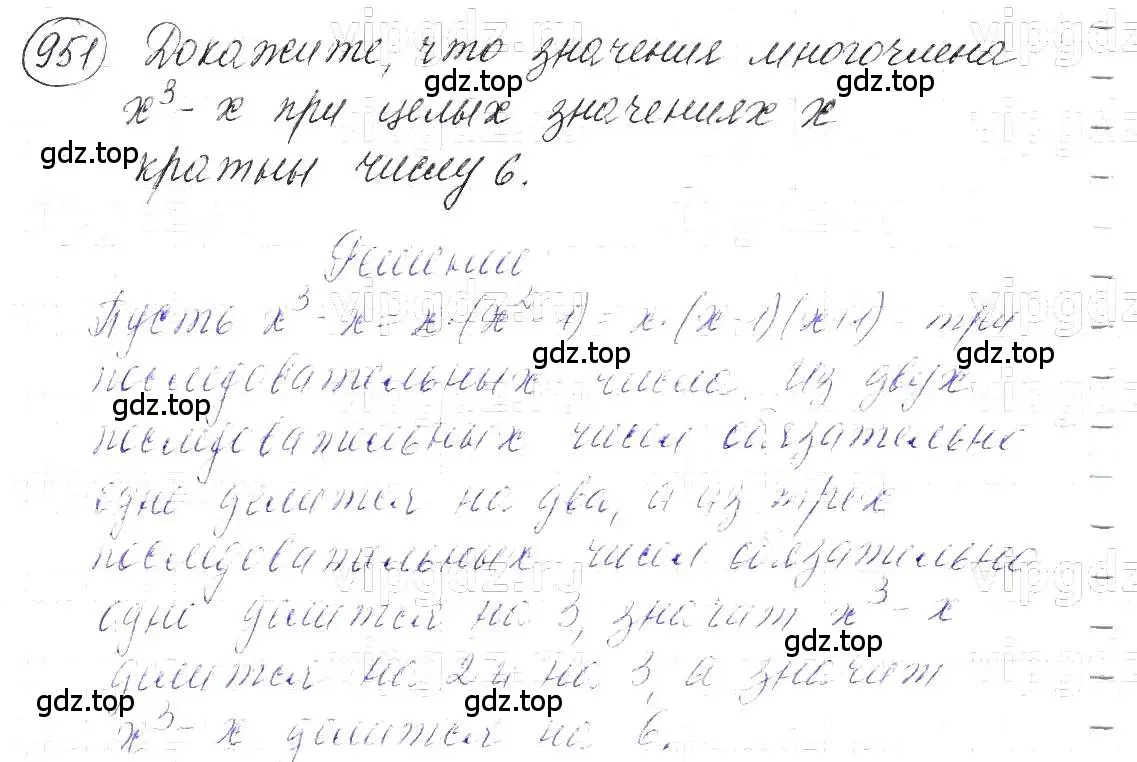 951 Докажите, что значения многочлена
x³ - x при целых значениях x
кратны числу 6.
Решение
Пусть x³ - x = x·(x² - 1) = x·(x-1)(x+1) - три
последовательных числа. Из двух
последовательных чисел обязательно
одно делится на два, а из трех
последовательных чисел обязательно
одно делится на 3, значит x³ - x
делится на 2 и на 3, а значит
x³ - x делится на 6.
gdz.top
gdz.top
gdz.top
gdz.top
gdz.top
gdz.top
gdz.top
gdz.top
gdz.top
vipgdz.ru
vipgdz.ru
vipgdz.ru
vipgdz.ru